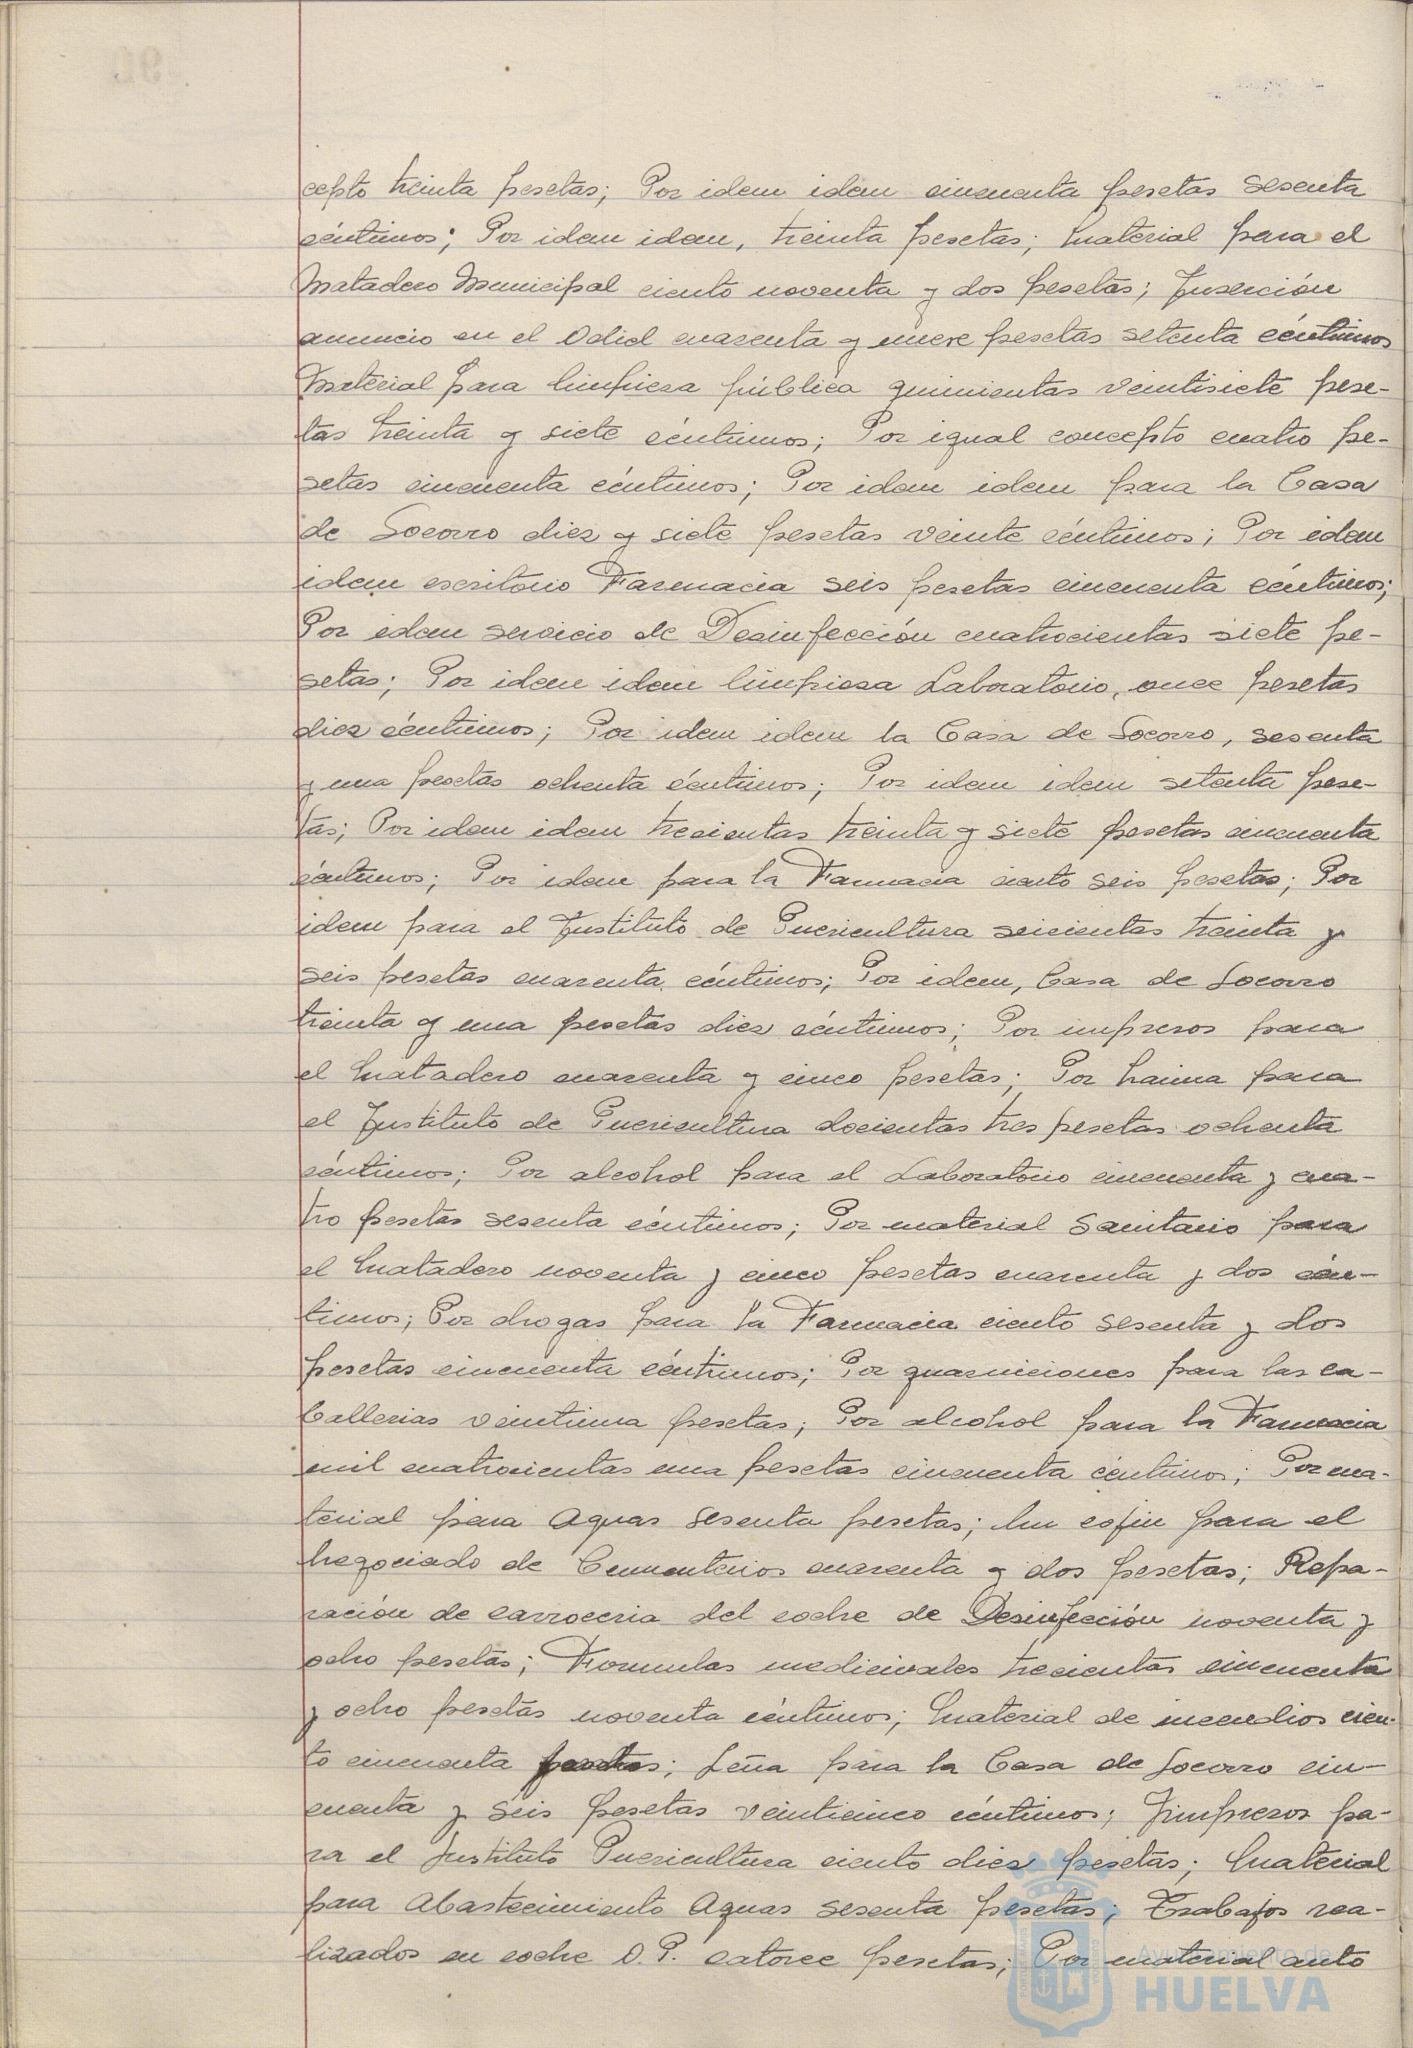 cepto treinta pesetas; Por idem idem cincuenta pesetas sesenta
céntimos; Por idem idem, treinta pesetas; Material para el
Matadero Municipal ciento noventa y dos pesetas; Inserción
anuncio en el Odiel cuarenta y nueve pesetas setenta céntimos
Material para limpieza pública quinientas veintisiete pese-
tas treinta y siete céntimos; Por igual concepto cuatro pe-
setas cincuenta céntimos; Por idem idem para la Casa
de Socorro diez y siete pesetas veinte céntimos; Por idem
idem escritorio Farmacia seis pesetas cincuenta céntimos;
Por idem servicio de Desinfección cuatrocientas siete pe-
setas; Por idem idem limpieza Laboratorio, once pesetas
diez céntimos; Por idem idem la Casa de Socorro, sesenta
y una pesetas ochenta céntimos; Por idem idem setenta pese-
tas; Por idem idem trecientas treinta y siete pesetas cincuenta
céntimos; Por idem para la Farmacia ciento seis pesetas; Por
idem para el Instituto de Puericultura seicientas treinta y
seis pesetas cuarenta céntimos; Por idem, Casa de Socorro
treinta y una pesetas diez céntimos; Por impresos para
el Matadero cuarenta y cinco pesetas; Por harina para
el Instituto de Puericultura docientas tres pesetas ochenta
céntimos; Por alcohol para el Laboratorio cincuenta y cua-
tro pesetas sesenta céntimos; Por material Sanitario para
el Matadero noventa y cinco pesetas cuarenta y dos cén-
timos; Por drogas para la Farmacia ciento sesenta y dos
pesetas cincuenta céntimos; Por guarniciones para las ca-
ballerias veintiuna pesetas; Por alcohol para la Farmacia
mil cuatrocientas una pesetas cincuenta céntimos; Por ma-
terial para Aguas sesenta pesetas; Un cojin para el
Negociado de Cementerios cuarenta y dos pesetas; Repa-
ración de carroceria del coche de Desinfección noventa y
ocho pesetas; Formulas medicinales trecientas cincuenta
y ocho pesetas noventa céntimos; Material de incendios cien-
to cincuenta pesetas; Leña para la Casa de Socorro cin-
cuenta y seis pesetas veinticinco céntimos; Impresos pa-
ra el Instituto Puericultura ciento diez pesetas; Material
para Abastecimiento Aguas sesenta pesetas; Trabajos rea-
lizados en coche O.P. catorce pesetas; Por material auto
Ayuntamiento de
HUELVA